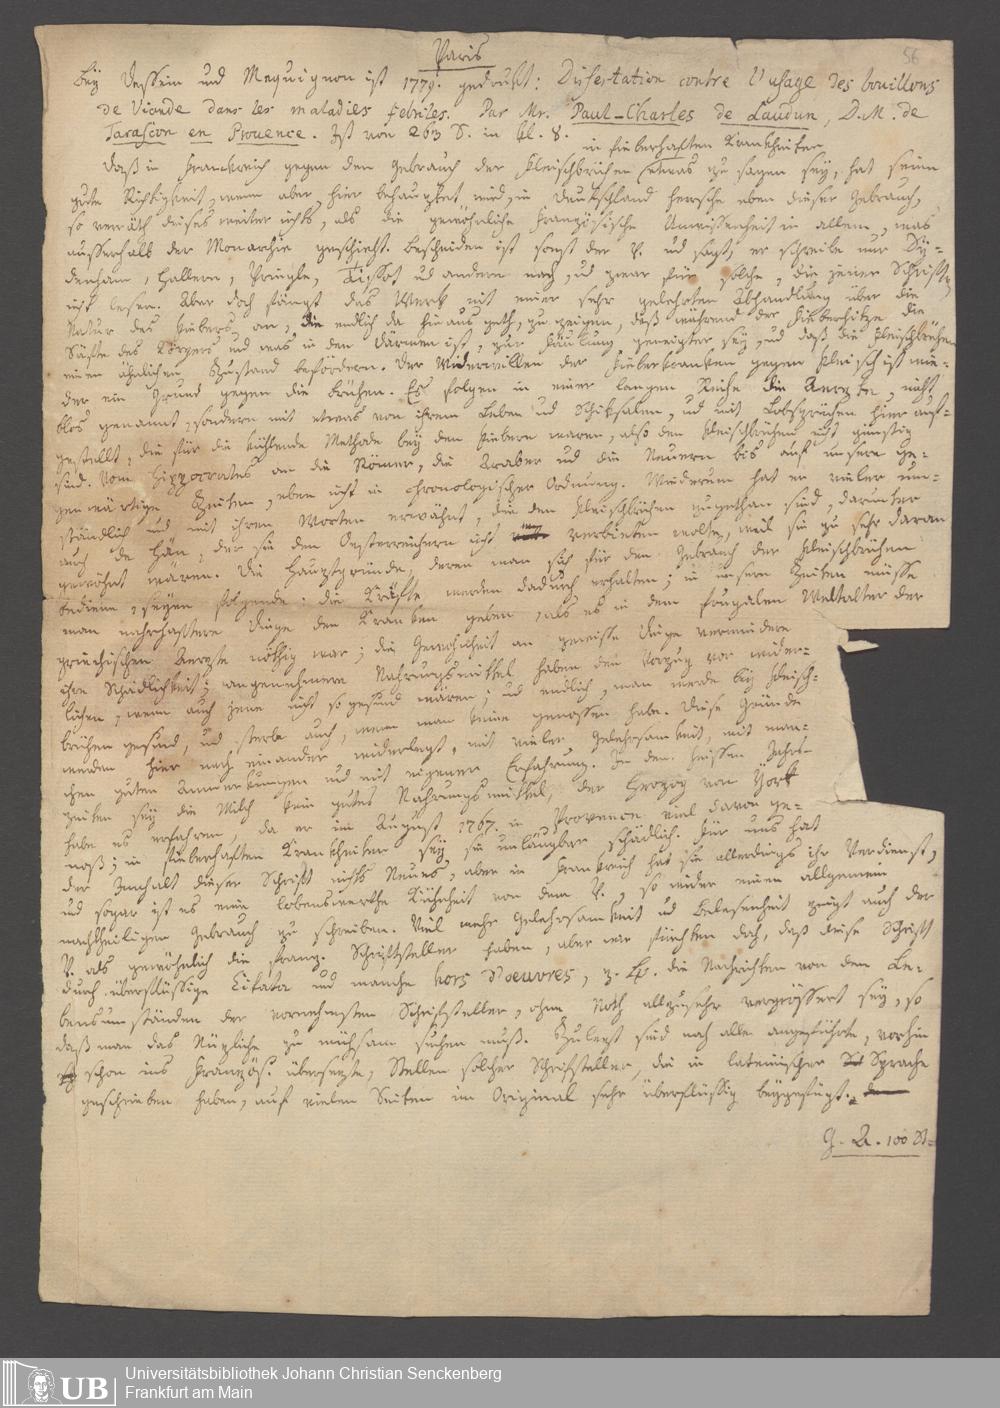 56
Paris
Bey Dessein und Mequignon ist 1779. gedrukt: Dissertation contre l'usage des bouillons
de Viande dans les maladies febriles. Par Mr. Paul-Charles de Laudun, D.M. de
Tarascon en Provence. Ist von 263 S. in kl. 8.
in fieberhaften Krankheiten
Daß in Frankreich gegen den Gebrauch der Fleischbrühen etwas zu sagen sey, hat seine
gute Richtigkeit, wenn aber hier behauptet wird, in Deutschland herrsche eben dieser Gebrauch,
so verräth dieses weiter nichts, als die gewöhnliche Französische Unwissenheit in allem, was
ausserhalb der Monarchie geschieht. Bescheiden ist sonst der V. und sagt, er schreibe nur Sy-
denham, Hallern, Pringle, Tissot und andern nach, und zwar für solche, die jener Schriften
nicht lesen. Aber doch fängt das Werk mit einer sehr gelehrten Abhandlung über die
Natur des Fiebers an, die endlich da hinaus geht, zu zeigen, daß während der Fieberhitze die
Säfte des Körpers und was in den Därmen ist, zur Fäulung geneigter sey, und daß die Fleischbrühen
einen ähnlichen Zustand befördern. Der Widerwillen der Fieberkranken gegen Fleisch ist wie-
der ein Grund gegen die Brühen. Es folgen in einer langen Reihe die Aerzte, nicht
blos genannt, sondern mit etwas von ihrem Leben und Schiksalen, und mit Lobsprüchen hier auf-
gestellt, die für die kühlende Methode bey den Fiebern waren, also den Fleischbrühen nicht günstig
sind. Vom Hippocrates an die Römer, die Araber und die Neuern bis auf unsere ge-
genwärtige Zeiten, eben nicht in chronologischer Ordnung. Wiederum hat er vieler um-
ständlich und mit ihren Worten erwähnt, die den Fleischbrühen zugethan sind, darunter
auch de Haen, der sie den Oesterreichern nicht verbieten wollte, weil sie zu sehr daran
gewöhnt wären. Die Hauptgründe, deren man sich für den Gebrauch der Fleischbrühen
bediene, seyen folgende: die Kräfte werden dadurch erhalten; in unsern Zeiten müsse
man nahrhaftere Dinge den Kranken geben, als es in dem frugalen Weltalter der
griechischen Aerzte nöthig war; die Gewohnheit an gewisse Dinge vermindere
ihre Schädlichkeit; angenehmere Nahrungsmittel haben den Vorzug vor wider-
lichen, wenn auch jene nicht so gesund wären; und endlich, man werde bey Fleisch-
brühen gesund, und sterbe auch, wenn man keine genossen habe. Diese Gründe
werden hier nach einander widerlegt, mit vieler Gelehrsamkeit, mit man-
chen guten Anmerkungen und mit eigener Erfahrung. In den heissen Jahrs-
zeiten sey die Milch kein gutes Nahrungsmittel, der Herzog von York
habe es erfahren, da er im August 1767. in Provence viel davon ge-
noß; in fieberhaften Krankheiten sey sie unläugbar schädlich. Für uns hat
der Innhalt dieser Schrift nichts Neues, aber in Frankreich hat sie allerdings ihr Verdienst,
und sogar ist es eine lobenswerthe Kühnheit von dem V., so wider einen allgemein
nachtheiligen Gebrauch zu schreiben. Viel mehr Gelehrsamkeit und Belesenheit zeigt auch der
V. als gewöhnlich die franz. Schriftsteller haben, aber wir fürchten doch, daß diese Schrift
durch überflüssige Citata und manche hors d'oeuvres, z. Ex. die Nachrichten von den Le-
bensumständen der vornehmsten Schriftsteller, ohne Noth allzusehr vergrössert sey, so
daß man das Nüzliche zu mühsam suchen muß. Zulezt sind noch alle angeführte, vorhin
schon ins Französ. übersezte, Stellen solcher Schriftsteller, die in lateinischer Sprache
geschrieben haben, auf vielen Seiten im Original sehr überflüssig beygefügt.
G. A. 100 St.
UB Universitätsbibliothek Johann Christian Senckenberg
Frankfurt am Main